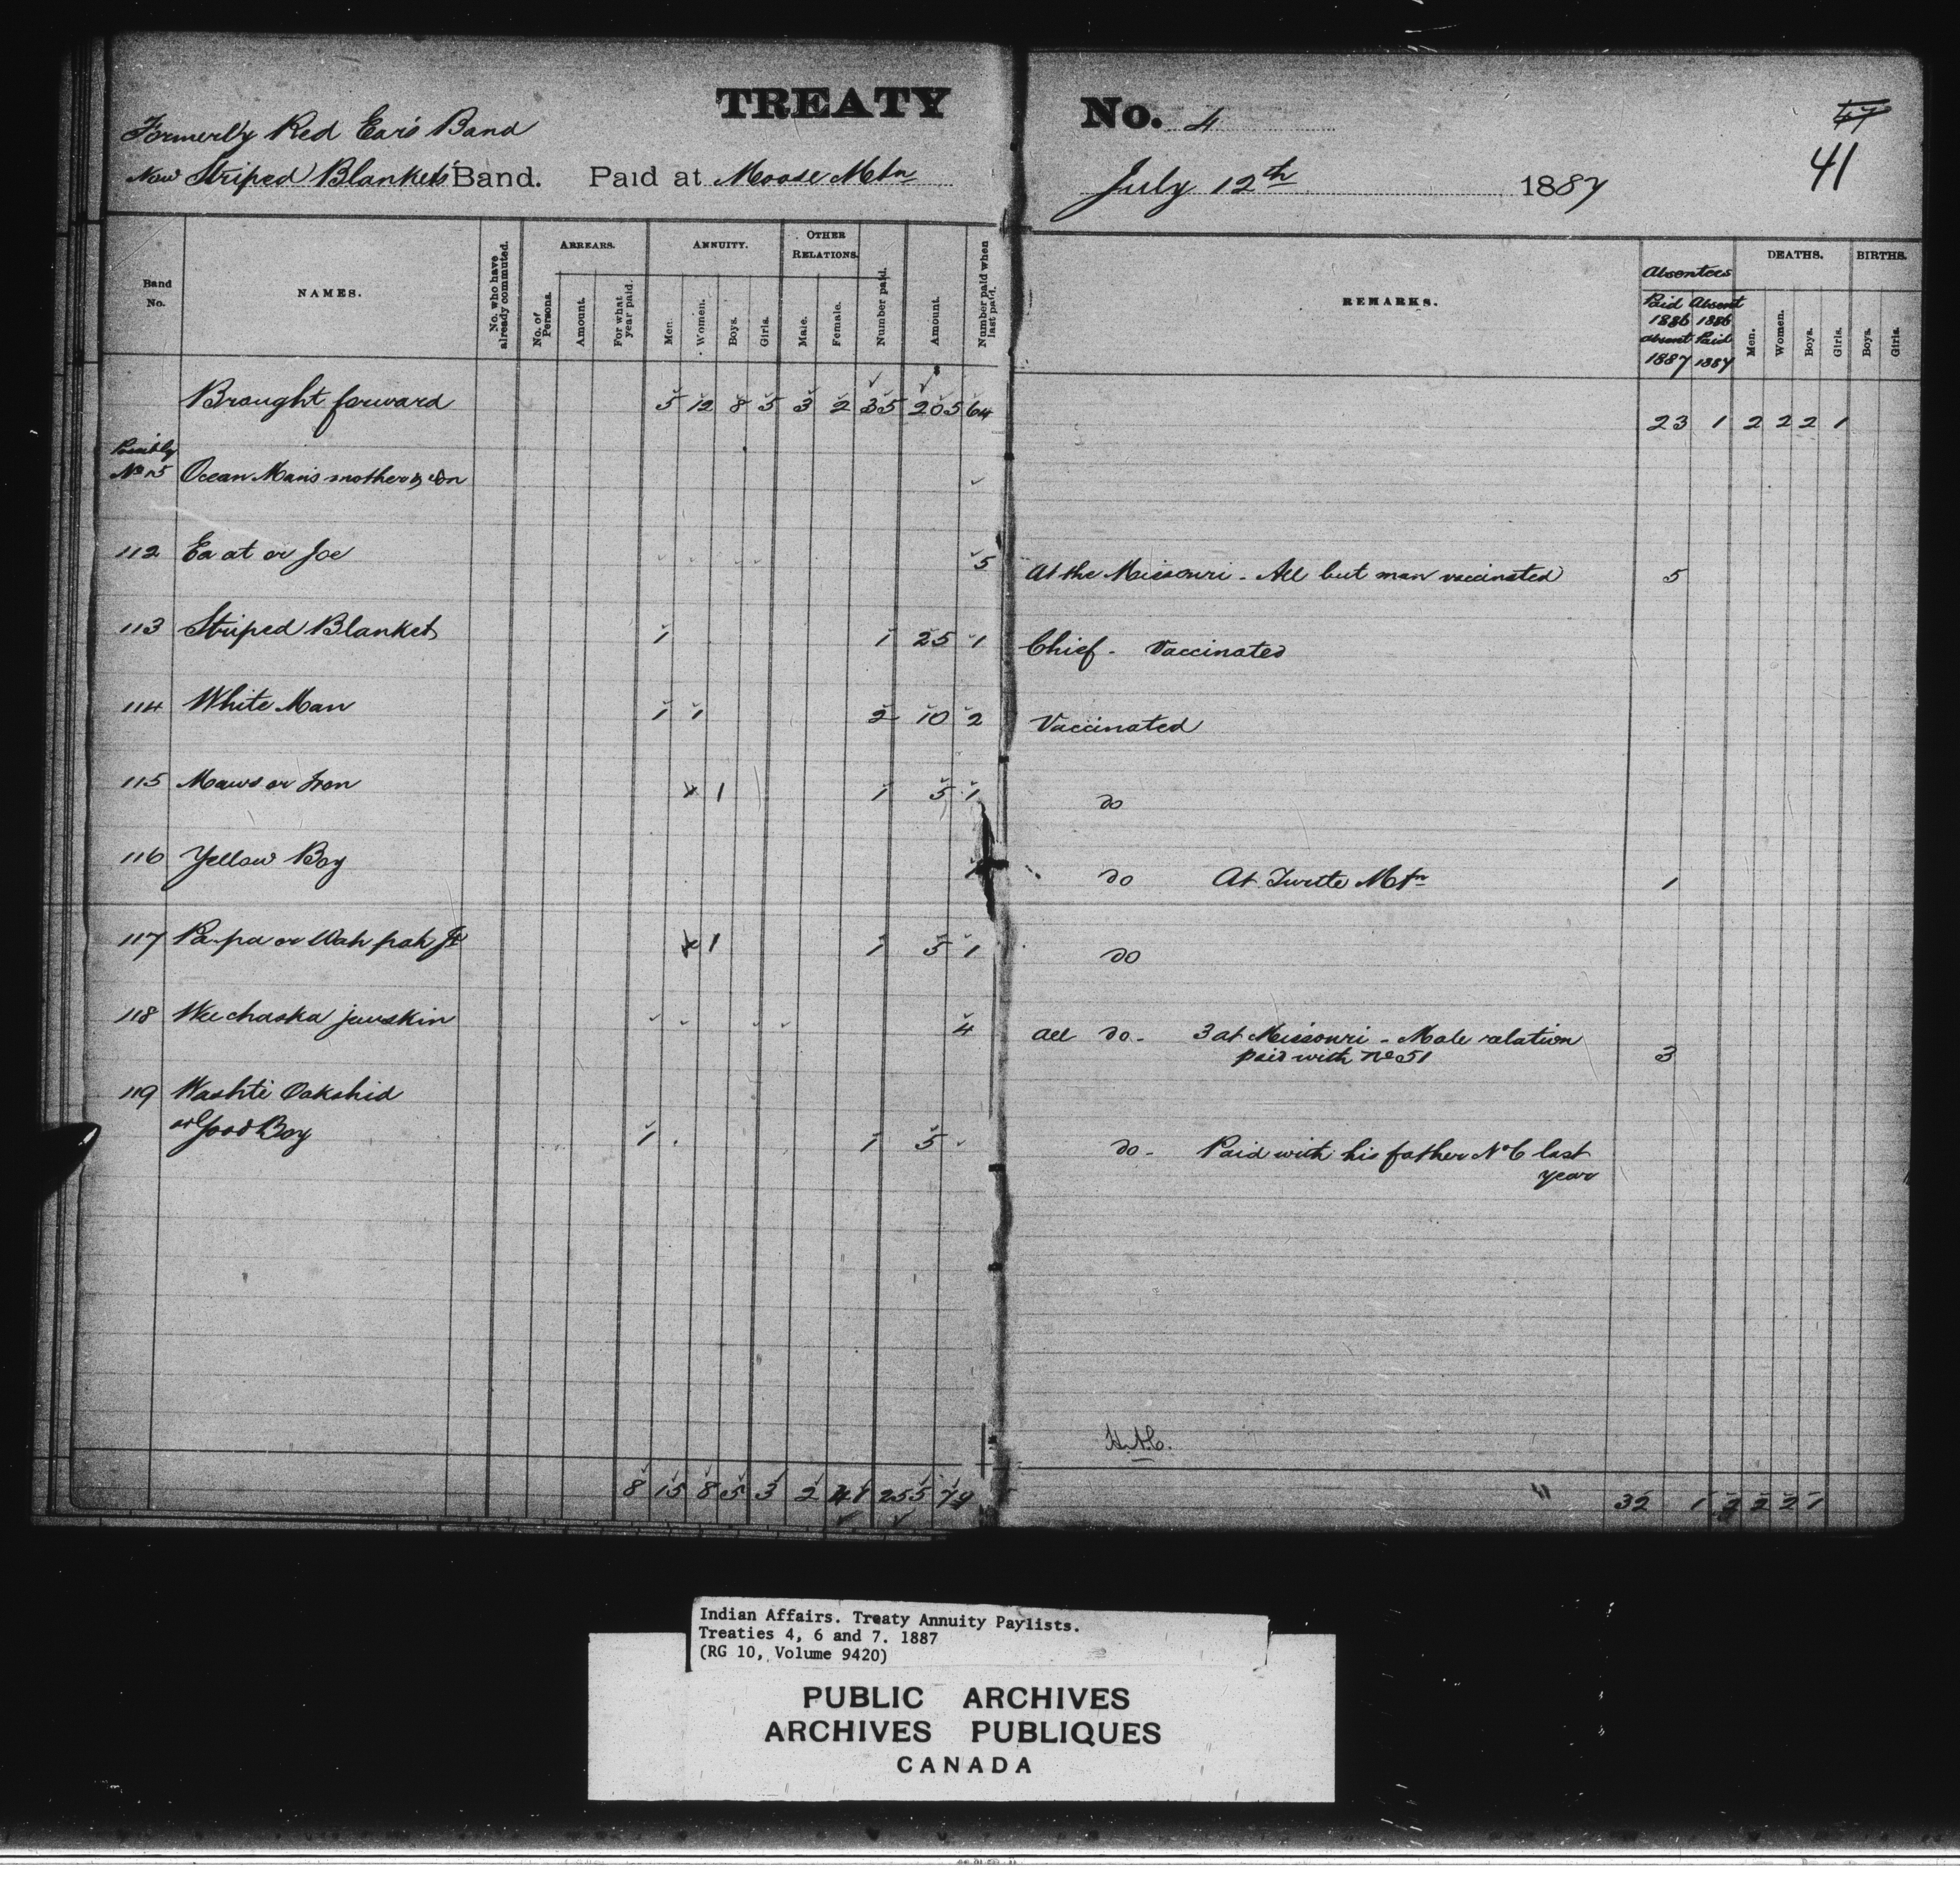 TREATY No. 4
Formerly Red Ear's Band
47
41
Now Striped Blanket's Band. Paid at Moose Mtn July 12th 1887
Band No.
NAMES.
No. who have already commuted.
ARREARS.
No. of Persons.
Amount.
For what year paid.
ANNUITY.
Men.
Women.
Boys.
Girls.
OTHER RELATIONS.
Male.
Female.
Number paid.
Amount.
Number paid when last paid.
REMARKS.
Absentees
Paid 1886 absent 1887
Absent 1886 Paid 1887
DEATHS.
Men.
Women.
Boys.
Girls.
BIRTHS.
Boys.
Girls.
Brought forward 5 12 8 5 3 2 35 205 64 23 1 2 2 2 1
Possibly
No 5 Ocean Man's mother & son
112 Ea at or Joe 5 At the Missouri - All but man vaccinated 5
113 Striped Blanket 1 1 25 1 Chief - Vaccinated
114 White Man 1 1 2 10 2 Vaccinated
115 Maws or Iron 1 1 5 1 do
116 Yellow Boy do At Turtle Mtn 1
117 Pa-pa or Wah pah 1 1 5 1 do
118 Wee chaska juuskin 4 all do - 3 at Missouri - Male relation
paid with No 51 3
119 Washti Oakshid
or Good Boy 1 1 5 do - Paid with his father No 6 last
year
8 15 8 5 3 2 41 255 79 32 1 2 2 2 1
Indian Affairs. Treaty Annuity Paylists.
Treaties 4, 6 and 7. 1887
(RG 10, Volume 9420)
PUBLIC ARCHIVES
ARCHIVES PUBLIQUES
CANADA